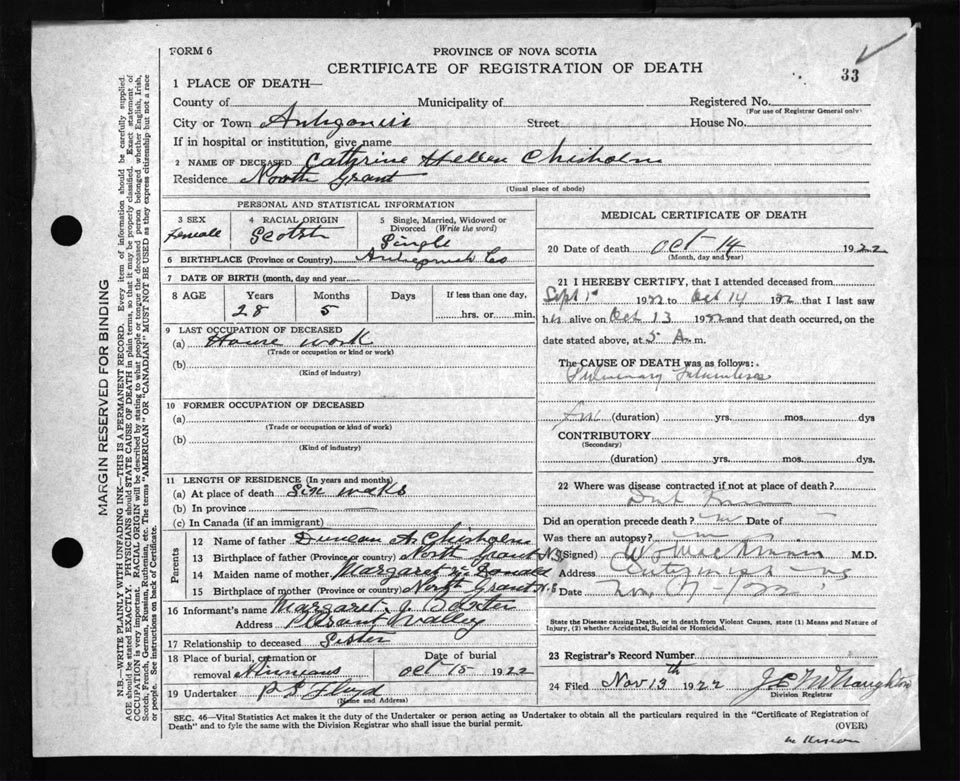 FORM 6
PROVINCE OF NOVA SCOTIA
CERTIFICATE OF REGISTRATION OF DEATH
33
1 PLACE OF DEATH—
County of Municipality of Registered No.
(For use of Registrar General only)
City or Town Antigonish Street House No.
If in hospital or institution, give name
2 NAME OF DECEASED Cathrine Hellen Chisholm
Residence North Grant
(Usual place of abode)
PERSONAL AND STATISTICAL INFORMATION
3 SEX
Female
4 RACIAL ORIGIN
Scotsh
5 Single, Married, Widowed or
Divorced (Write the word)
Single
6 BIRTHPLACE (Province or Country) Antigonish Co
7 DATE OF BIRTH (month, day and year)
8 AGE Years Months Days If less than one day,
28 5 hrs. or min.
9 LAST OCCUPATION OF DECEASED
(a) House work
(Trade or occupation or kind or work)
(b)
(Kind of industry)
10 FORMER OCCUPATION OF DECEASED
(a)
(Trade or occupation or kind of work)
(b)
(Kind of industry)
11 LENGTH OF RESIDENCE (In years and months)
(a) At place of death six waks
(b) In province
(c) In Canada (if an immigrant)
Parents
12 Name of father Duncan A. Chisholm
13 Birthplace of father (Province or country) North Grant N.S
14 Maiden name of mother Margaret Mc Donald
15 Birthplace of mother (Province or country) North Grant N.S
16 Informant's name Margaret J. Baxter
Address Plesant Valley
17 Relationship to deceased Sister
18 Place of burial, cremation or
removal
Date of burial
Oct 15 1922
19 Undertaker Floyd
(Name and Address)
MEDICAL CERTIFICATE OF DEATH
20 Date of death Oct 14 1922
(Month, day and year)
21 I HEREBY CERTIFY, that I attended deceased from
Sept 1st 1922 to Oct 14 192 that I last saw
h alive on Oct 13 1922 and that death occurred, on the
date stated above, at 5 A. m.
The CAUSE OF DEATH was as follows:
Pulmonary Tuberculosis
(duration) yrs. mos. dys
CONTRIBUTORY
(Secondary)
(duration) yrs. mos. dys.
22 Where was disease contracted if not at place of death?
Dont know
Did an operation precede death? no Date of
Was there an autopsy? no
(Signed) W. MacKinnon M.D.
Address Antigonish NS
Date Nov
State the Disease causing Death, or in death from Violent Causes, state (1) Means and Nature of
Injury, (2) whether Accidental, Suicidal or Homicidal.
23 Registrar's Record Number
24 Filed Nov 13th 1922
Division Registrar
SEC. 46—Vital Statistics Act makes it the duty of the Undertaker or person acting as Undertaker to obtain all the particulars required in the "Certificate of Registration of
Death" and to fyle the same with the Division Registrar who shall issue the burial permit.
(OVER)
MARGIN RESERVED FOR BINDING
N.B.—WRITE PLAINLY WITH UNFADING INK—THIS IS A PERMANENT RECORD. Every item of information should be carefully supplied.
AGE should be stated EXACTLY. PHYSICIANS should STATE CAUSE OF DEATH in plain terms, so that it may be properly classified. Exact statement of
OCCUPATION is very important. RACIAL ORIGIN will be described by stating to what people or tongue the deceased person belonged whether English, Irish,
Scotch, French, German, Russian, Ruthenian, etc. The terms "AMERICAN" OR "CANADIAN" MUST NOT BE USED as they express citizenship but not a race
or people. See instructions on back of Certificate.